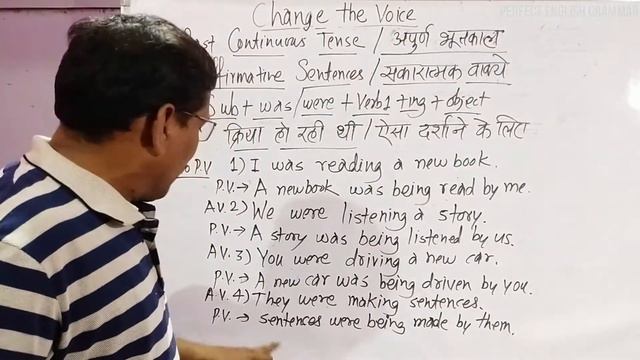 PERFECT ENGLISH GRAMMAR
Change the Voice
Past Continuous Tense / अपुर्ण भूतकाल
ffirmative Sentences / सकारात्मक वाक्ये
Sub + was/were + Verb1 + ing + object
क्रिया हो रही थी / ऐसा दर्शाने के लिए
P.V 1) I was reading a new book.
P.V. → A new book was being read by me.
A.V. 2) We were listening a story.
P.V. → A story was being listened by us.
A.V. 3) You were driving a new car.
P.V. → A new car was being driven by you.
A.V. 4) They were making sentences.
P.V. → Sentences were being made by them.